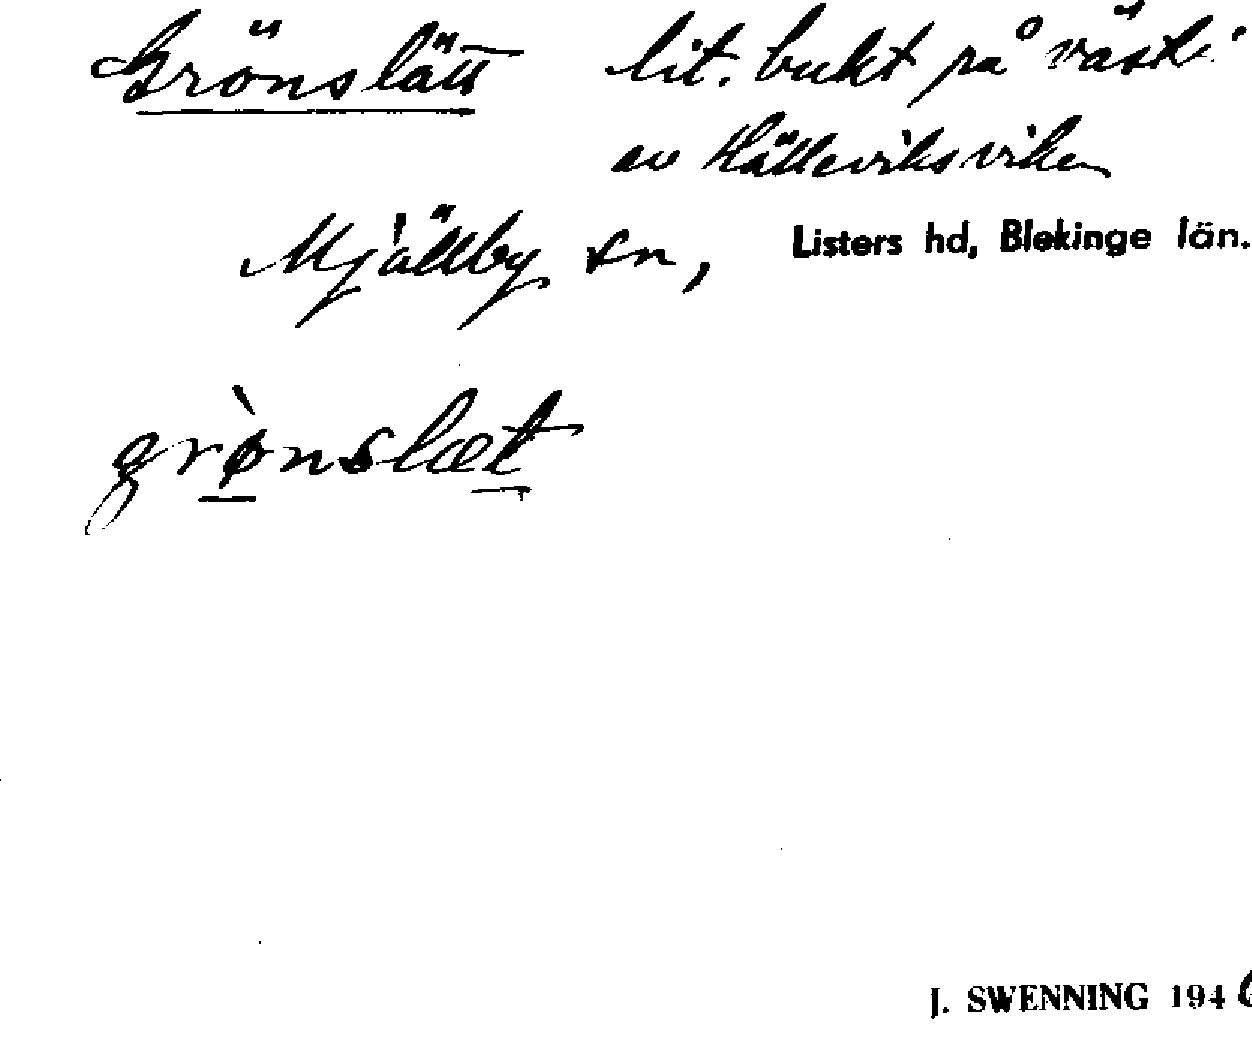 Grönslätt lit. bukt på västk.
av Hälleviksviken
Mjällby sn, Listers hd, Blekinge län.
grø̀nslæt
J. SWENNING 1946